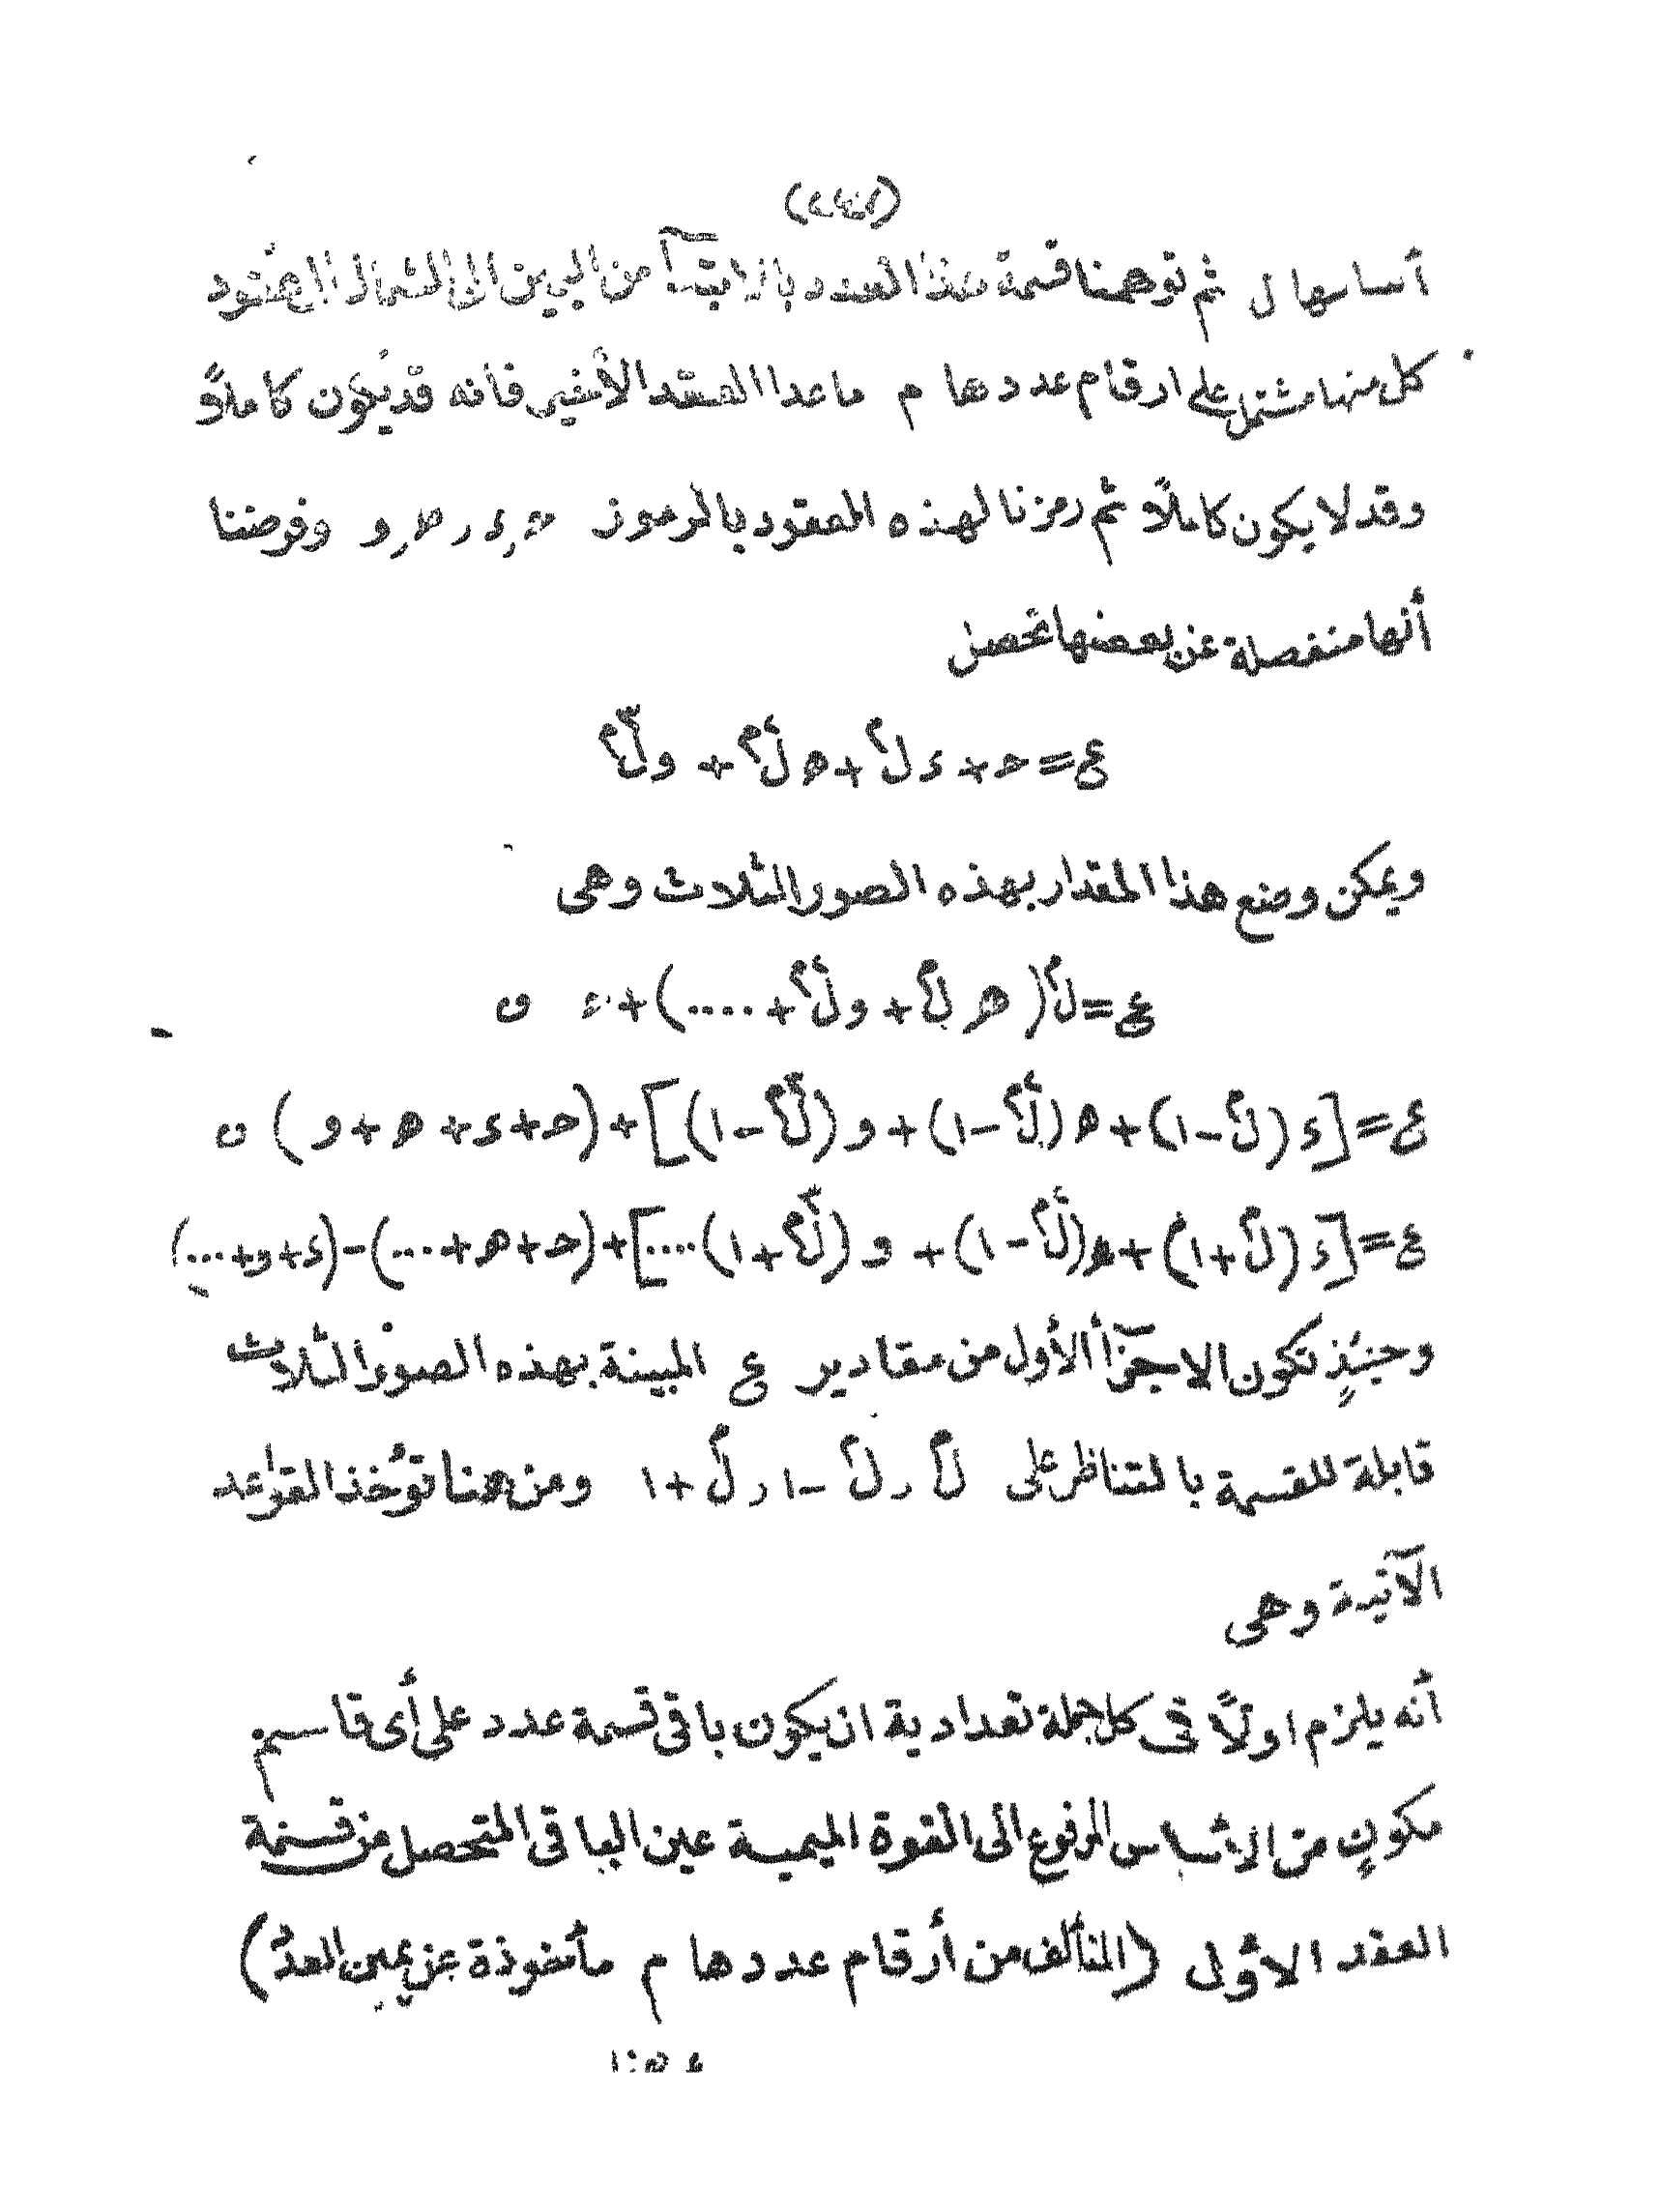 أساسها ل ثم توهمنا قسمة هذا العدد بالابتدآ من اليمين الى الشمال الى عقود
كل منها مشتمل على ارقام عددها م ما عدا العقد الأخير فانه قد يكون كاملاً
وقد لا يكون كاملاً ثم رمزنا لهذه العقود بالرموز حـ , ء , هـ , و وفرضنا
أنها منفصلة عن بعضها تحصل
ع = حـ + ء ل^م + هـ ل^٢م + و ل^٣م
ويمكن وضع هذا المقدار بهذه الصور الثلاث وهى
ع = ل^م ( هـ ل^م + و ل^٢م + .... ) +
ع = [ ء ( ل^م - ١ ) + هـ ( ل^٢م - ١ ) + و ( ل^٣م - ١ ) ] + ( حـ + ء + هـ + و )
ع = [ ء ( ل^م + ١ ) + هـ ( ل^٢م - ١ ) + و ( ل^٣م + ١ ) .... ] + ( حـ + هـ + ... ) - ( ء + و + ... )
وحينئذٍ تكون الاجزآ الأول من مقادير ع المبينة بهذه الصور الثلاث
قابلة للقسمة بالتناظر على ل^م , ل^م - ١ , ل^م + ١ ومن هنا تؤخذ القواعد
الآتية وهى
أنه يلزم اولاً فى كل جملة تعدادية ان يكون باقى قسمة عدد على أى قاسم
مكونٍ من الاساس المرفوع الى القوة الميمية عين الباقى المتحصل من قسمة
العقد الأولى (المتألف من أرقام عددها م مأخوذة عن يمين العدد)